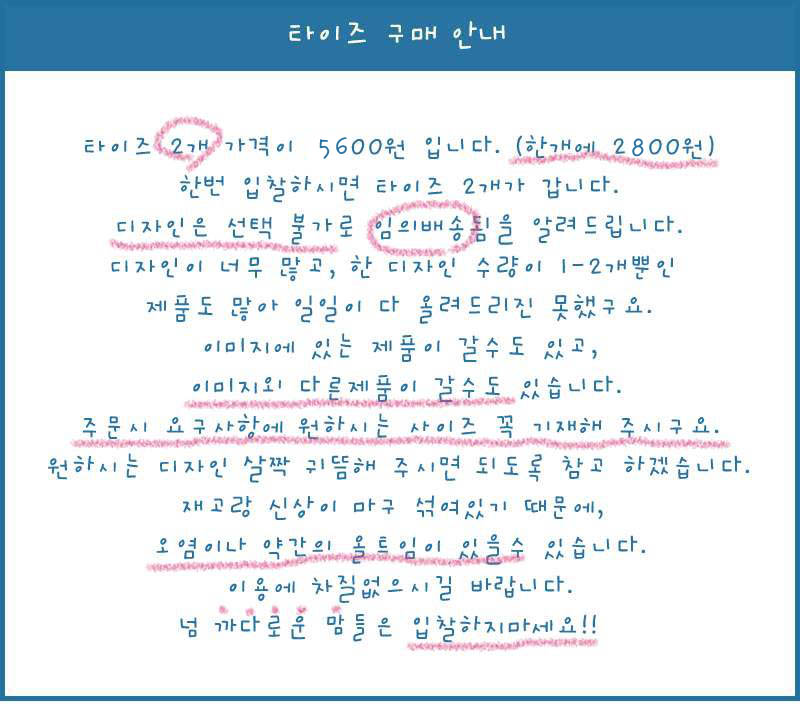 타이즈 구매 안내
타이즈 2개 가격이 5600원 입니다. (한개에 2800원)
한번 입찰하시면 타이즈 2개가 갑니다.
디자인은 선택 불가로 임의배송됨을 알려드립니다.
디자인이 너무 많고, 한 디자인 수량이 1-2개뿐인
제품도 많아 일일이 다 올려드리진 못했구요.
이미지에 있는 제품이 갈수도 있고,
이미지외 다른제품이 갈수도 있습니다.
주문시 요구사항에 원하시는 사이즈 꼭 기재해 주시구요.
원하시는 디자인 살짝 귀뜸해 주시면 되도록 참고 하겠습니다.
재고랑 신상이 마구 섞여있기 때문에,
오염이나 약간의 올트임이 있을수 있습니다.
이용에 차질없으시길 바랍니다.
넘 까다로운 맘들은 입찰하지마세요!!